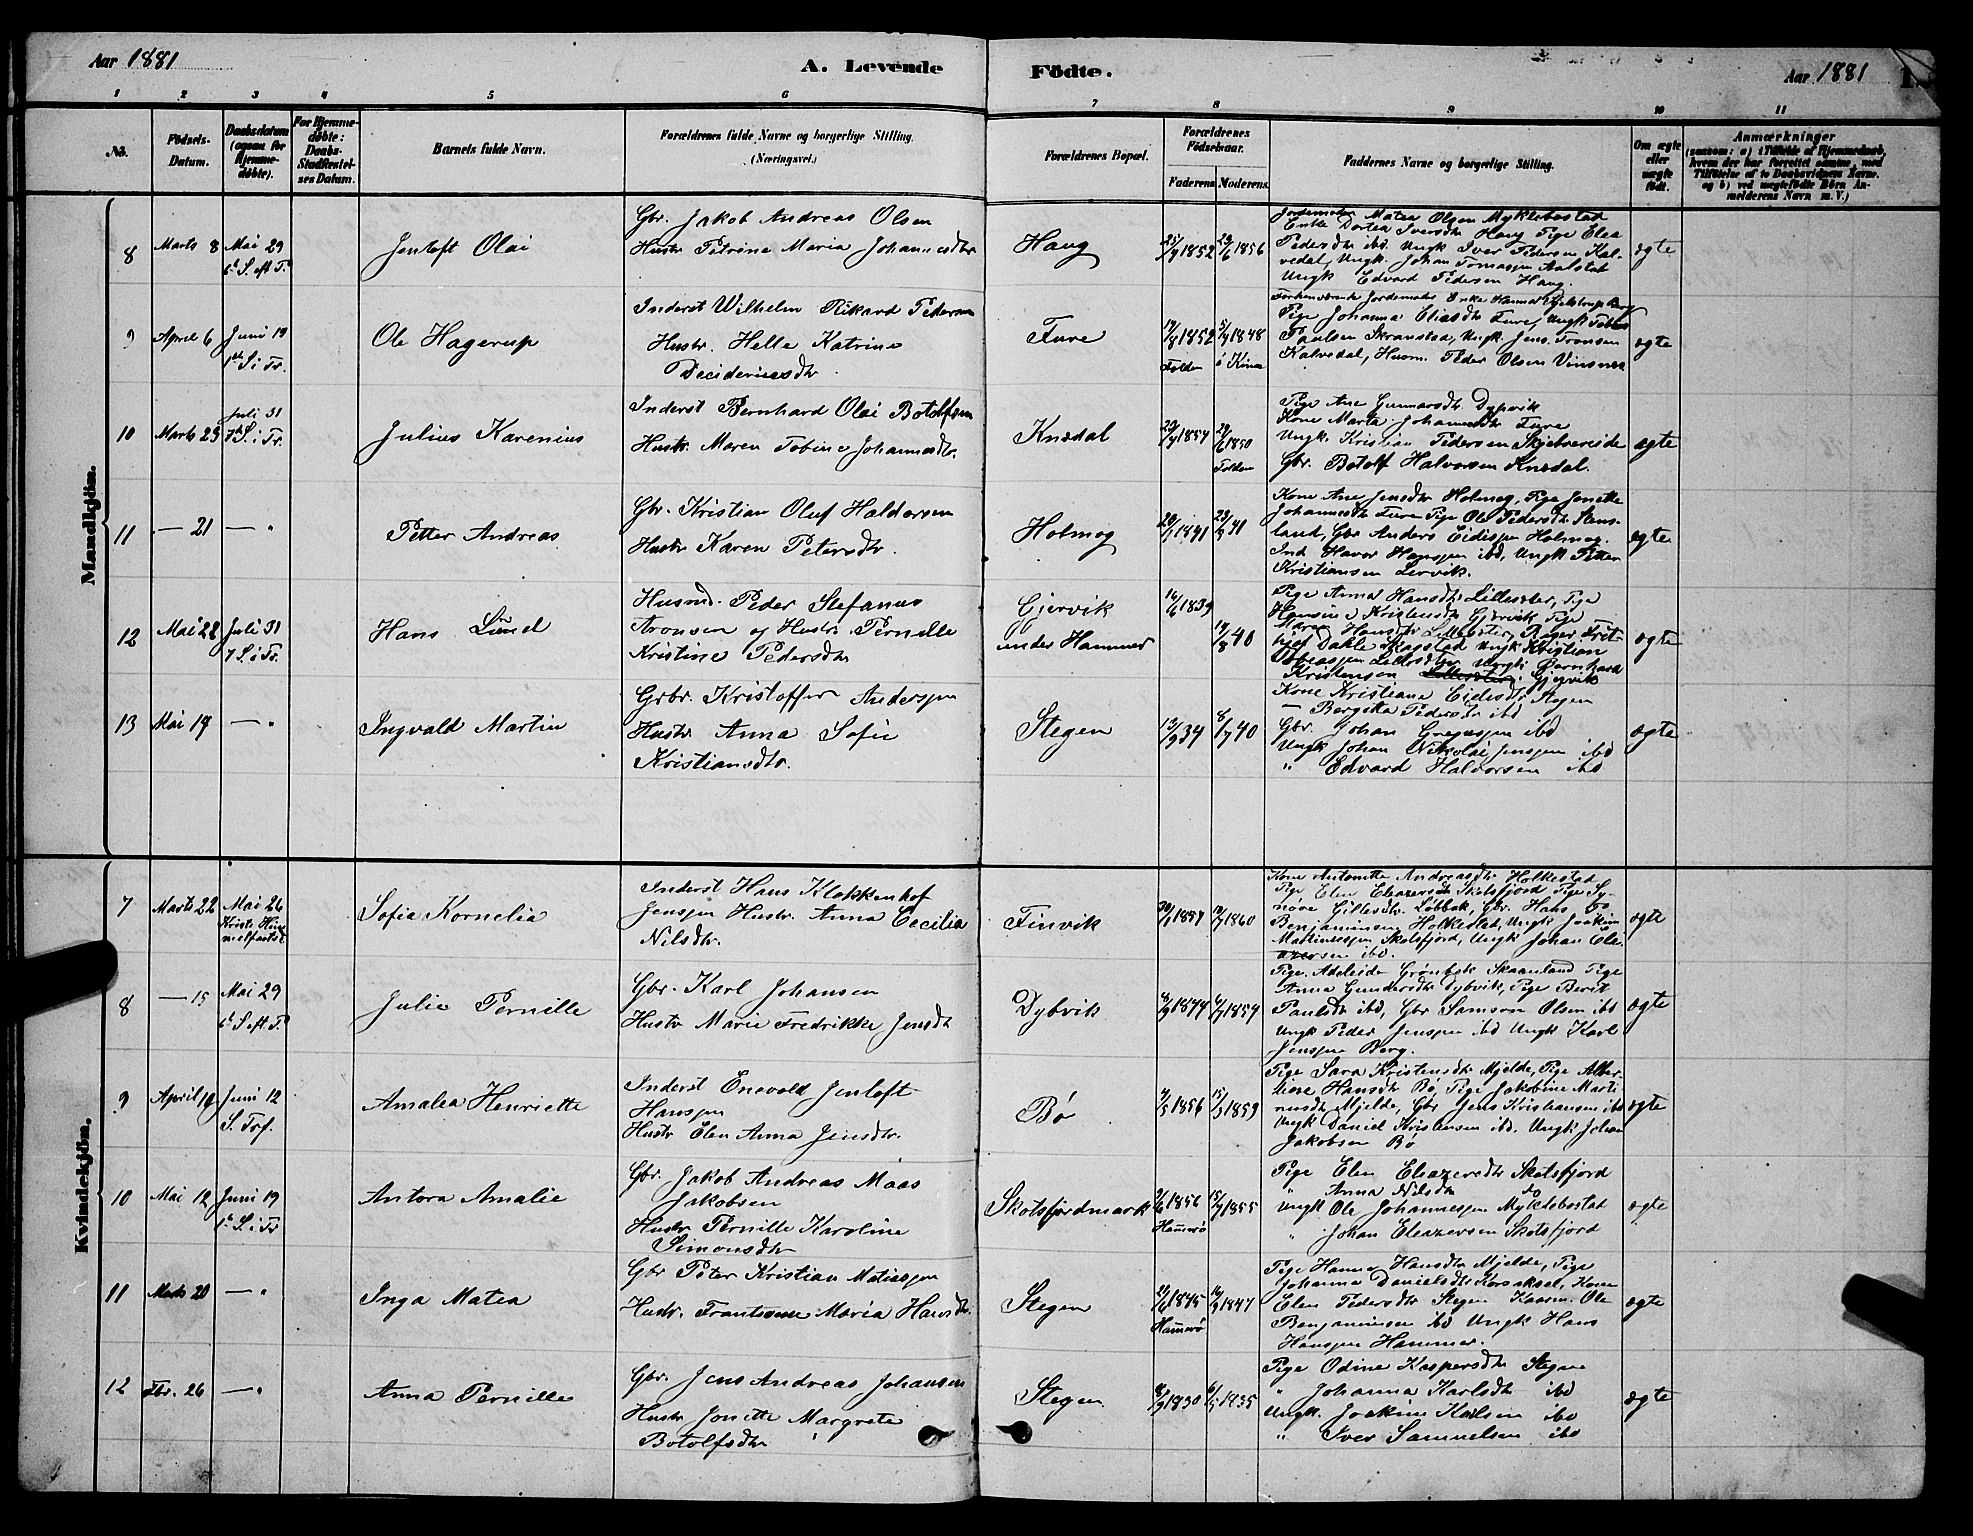 Aar 1881
A. Levende
Födte.
Aar 1881
1 2 3 4 5 6 7 8 9 10 11
No.
Födsels-Datum.
Daabsdatum (ogsaa for Hjemme-døbte).
For Hjemme-døbte: Daabs-Stadfæstel-ses Datum.
Barnets fulde Navn.
Forældrenes fulde Navne og borgerlige Stilling.
(Næringsvei.)
Forældrenes Bopæl.
Forældrenes Födselsaar.
Faderens Moderens
Faddernes Navne og borgerlige Stilling.
Om ægte eller uægte födt.
Anmærkninger
Mandkjön.
8
Marts 8
Mai 29
6te S. eft P.
Jentoft Olai
Gbr. Jakob Andreas Olsen
Hustr Petrine Maria Johannesdtr
Haug
1852
1856
Jordemoder Matea Olsen Myklebostad
Enke Dortea Iversdtr Haug Pige Elea
Pedersdtr ibd. Ungk Iver Pedersen Kal-
vedal, Ungk. Johan Tomassen Aalstad
Ungk Edvard Pedersen Haug.
ægte
9
April 6
Juni 19
1ste S. i Tr.
Ole Hagerup
Inderst Wilhelm Rikard Pedersen
Hustr. Helle Katrine
Decideriusdtr
Fure
1852
Folden
1848
Pige Johanna Eliasdtr Fure, Ungk Tobias
Paulsen Skranstad, Ungk Jens Tronsen
Kalvedal, Husm. Peder Olsen Vinsnes
ægte
10
Marts 23
Juli 31
7de S. i Tr.
Julius Karenius
Inderst Bernhard Olai Botolfsen
Hustr. Maren Tobine Johannesdtr.
Knedal
1857
1850
Folden
Pige Ane Gunnarsdtr Dypvik
Kone Marta Johannesdtr Fure
Ungk. Kristian Pedersen
Gbr. Botolf Halvorsen Knedal.
ægte
11
— 21
— "
Petter Andreas
Gbr. Kristian Oluf Haldorsen
Hustr Karen Petersdtr.
Holmog
1841
41
Kone Ane Jensdtr Holmog, Pige Jonette
Johannesdtr Fure Pige Ole Pedersdtr Stens-
land, Gbr Anders Eidissen Holmog.
Ind Havor Hanssen ibd, Ungk Petter
Kristiansen Lervik.
ægte
12
Mai 28
Juli 31
7 S. i Tr.
Hans Lund
Husmd. Peder Stefanus
Aronsen og Hustr. Pernille
Kristine Pedersdtr
Gjervik
under Hammer
16/6 1839
40
Pige Anna Hansdtr Lilleseter, Pige
Hansine Kristensdtr Gjervik Pige
Maren Hansdtr Lilleseter,
Dahle Skagstad Ungk Kristian
Ungk. Bernhard
Kristensen Gjervik
ægte
13
Mai 19
— "
Ingvald Martin
Grbr. Kristoffer Anderssen
Hustr Anna Sofie
Kristiansdtr.
Stegen
34
8/7 40
Kone Kristiana Eidisdtr Stegen
— Bergitta Pedersdtr ibd
Gbr. Johan Gregussen ibd
Ungk Johan Nikolai Jenssen ibd
" Edvard Halvorsen ibd
ægte
Kvindekjön.
7
Marts 22
Mai 26
Kristi Him-
melfartsd
Sofia Kornelia
Inderst Hans Klokkenhof
Jenssen Hustr. Anna Cecilia
Nilsdtr.
Finvik
1857
1860
Kone Antonette Andreasdtr Holkestad
Pige Elen Eleazersdtr Skotsfjord Pige Sy-
nøve Gillesdtr. Løbbak, Gbr. Hans
Benjaminsen Holkestad, Ungk Joakim
Skotsfjord, Ungk Johan Elea-
zersen ibd.
ægte
8
— 15
Mai 29
6te S eft P.
Julie Pernille
Gbr. Karl Johansen
Hustr Marie Fredrikke Jensdtr
Dybvik
1844
1854
Pige. Adeleide Grønbek Skaanland Pige
Anna Gundersdtr Dybvik, Pige Berit
Paulsdtr ibd, Gbr Samson Olsen ibd
Ungk Peder Jenssen ibd Ungk Karl
Jenssen Berg.
ægte
9
April 19
Juni 12
S. Tref.
Amalea Henriette
Inderst Enevold Jentoft
Hanssen
Hustr Elen Anna Jensdtr.
Bø
1856
1859
Pige Sara Kristensdtr Mjelde, Pige Alber-
tine Hansdtr Bø, Pige Jakobine Marti-
nusdtr Mjelde, Gbr Jens Kristiansen ibd
Ungk Daniel Kristensen ibd, Ungk Johan
Jakobsen Bø
ægte
10
Mai 12
Juni 19
1ste S. i Tr
Antora Amalie
Gbr. Jakob Andreas Maas
Jakobsen
Hustr Pernille Karoline
Simonsdtr
Skotsfjordmark
1856
Hammerø
1855
Pige Elen Eleazersdtr Skotsfjord
" Anna Nilsdtr do
Ungk Ole Johannessen Myklebostad
" Johan Eleazersen Skotsfjord
ægte
11
Marts 20
— "
Inga Matea
Gbr Peter Kristian Matiassen
Hustr. Frantsene Maria Hansdtr.
Stegen
1845
Hammerø
1847
Pige Hanna Hansdtr Mjelde, Pige
Johanna Danielsdtr Korsaksel, Kone
Elen Pedersdtr Stegen Kaarm. Ole
Benjaminsen ibd Ungk Hans
Hanssen Hammer.
ægte
12
Fbr. 26
— "
Anna Pernille
Gbr. Jens Andreas Johansen
Hustr Jonette Margrete
Botolfsdtr
Stegen
1830
6/5 1835
Pige Odine Kaspersdtr Stegen
" Johanna Karlsdtr ibd
Ungk. Joakim Karlsen ibd
" Iver Samuelsen ibd
ægte